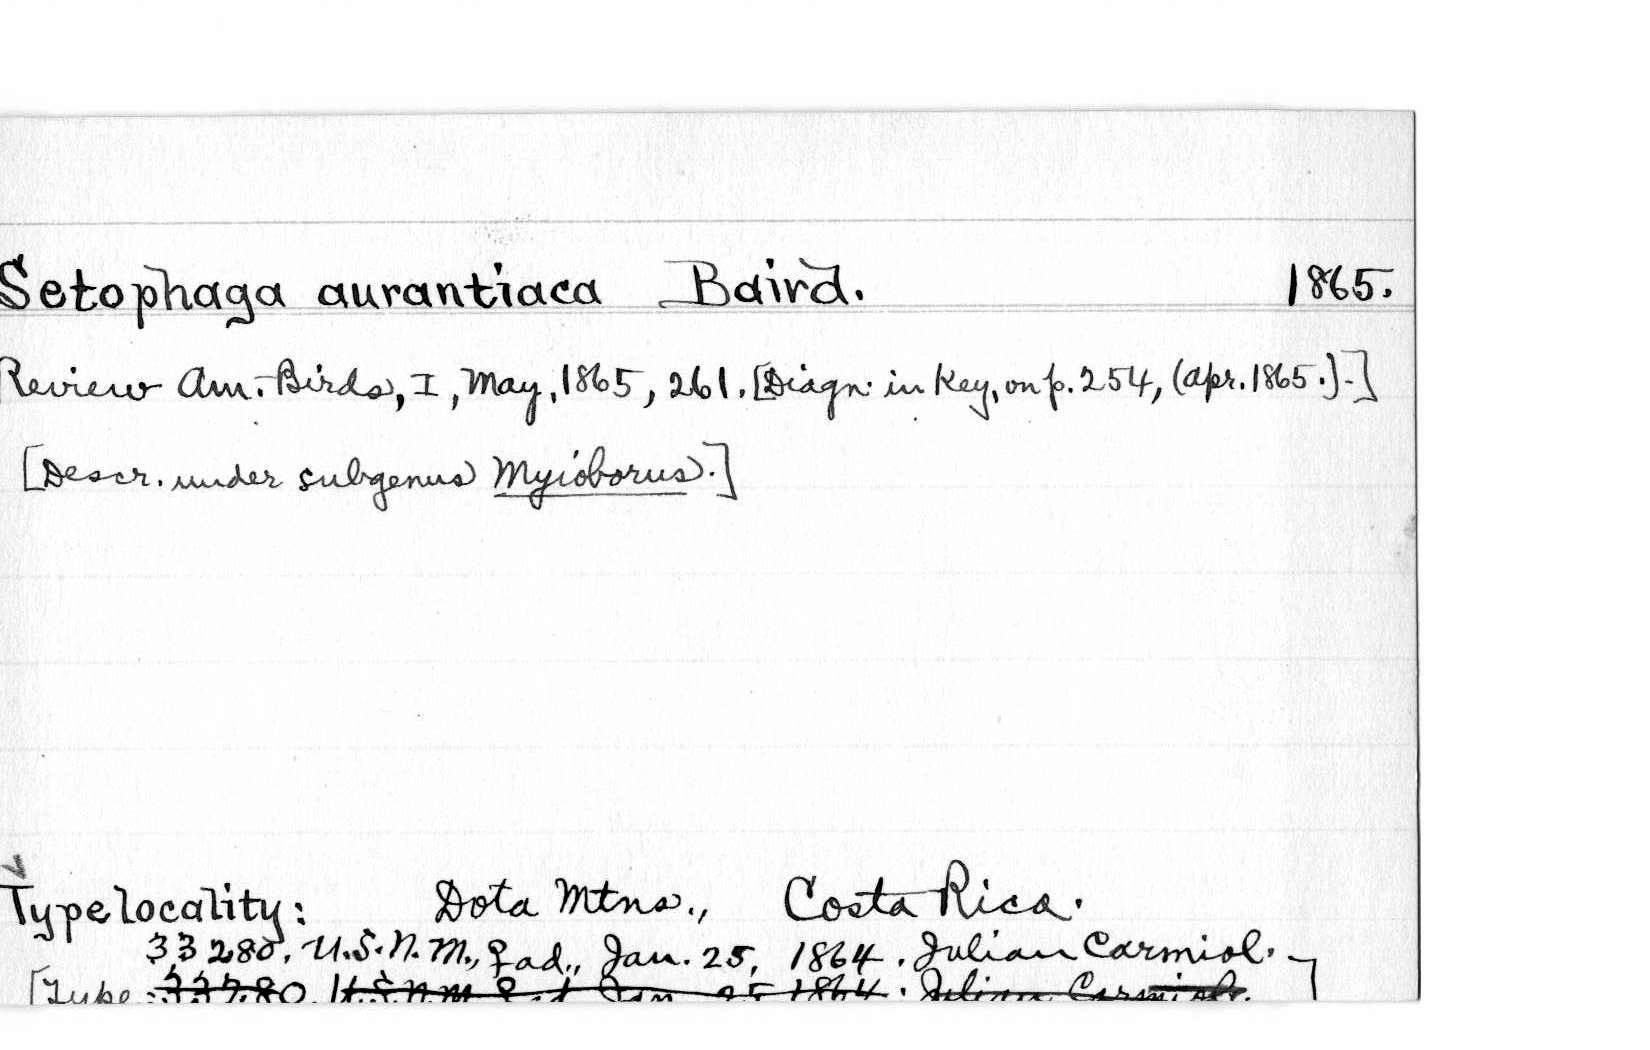 Setophaga aurantiaca Baird. 1865.
Review Am. Birds, I, May, 1865, 261. [Diagn. in Key, on p. 254, (Apr. 1865.).]
[Descr. under subgenus Myioborus.]
Type locality: Dota Mtns., Costa Rica.
33280, U.S.N.M., ♀ ad., Jan. 25, 1864. Julian Carmiol.
[Type: 33280, U.S.N.M. ♀ ad Jan 25 1864. Julian Carmiol.]